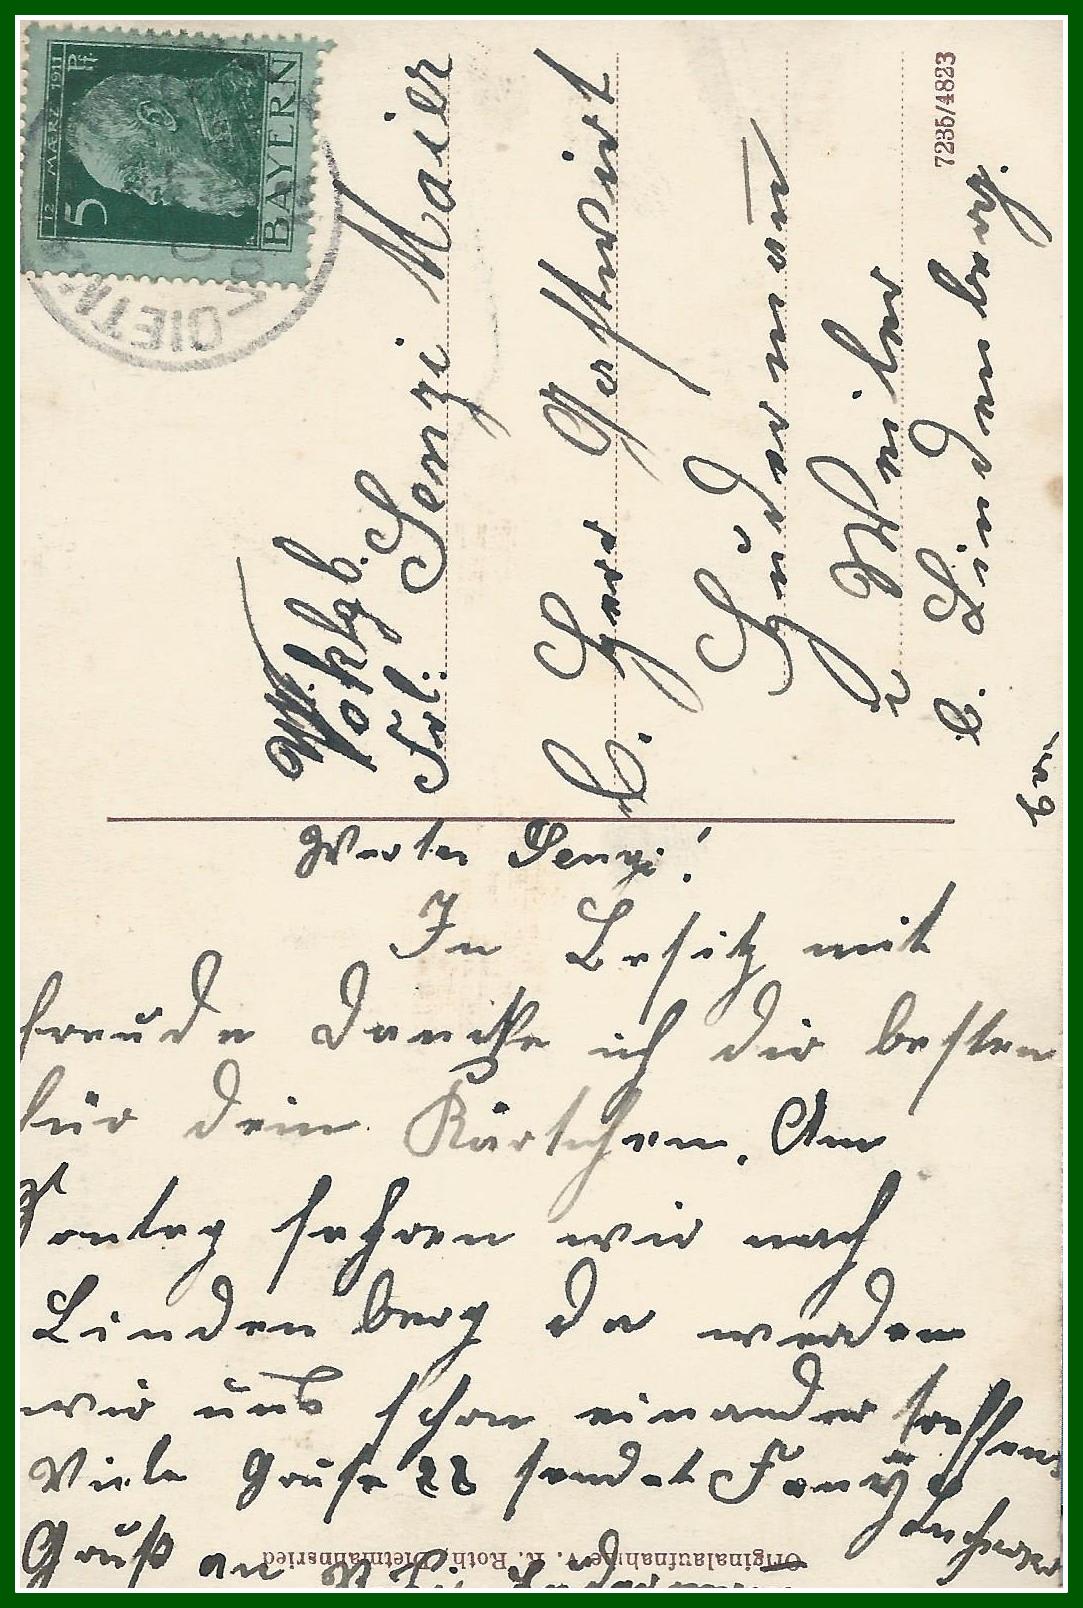 12. MÆRZ 1911
5 Pf
BAYERN
DIETM
7235/4823
Wohlgb.
Frl. Senzi Maier
b. Herr Gastwirt
Z Weiler
b. Lindenberg
Werte Senzi!
In Besitz mit
freude Dancke ich dir besten
für dein Kärtchen. Am
Sontag fahren wir nach
Lindenberg da werden
wir uns schon einander treffen
Viele Grüße sendet
Gruß an
Originalaufnahme v. R. Roth, Dietmannsried